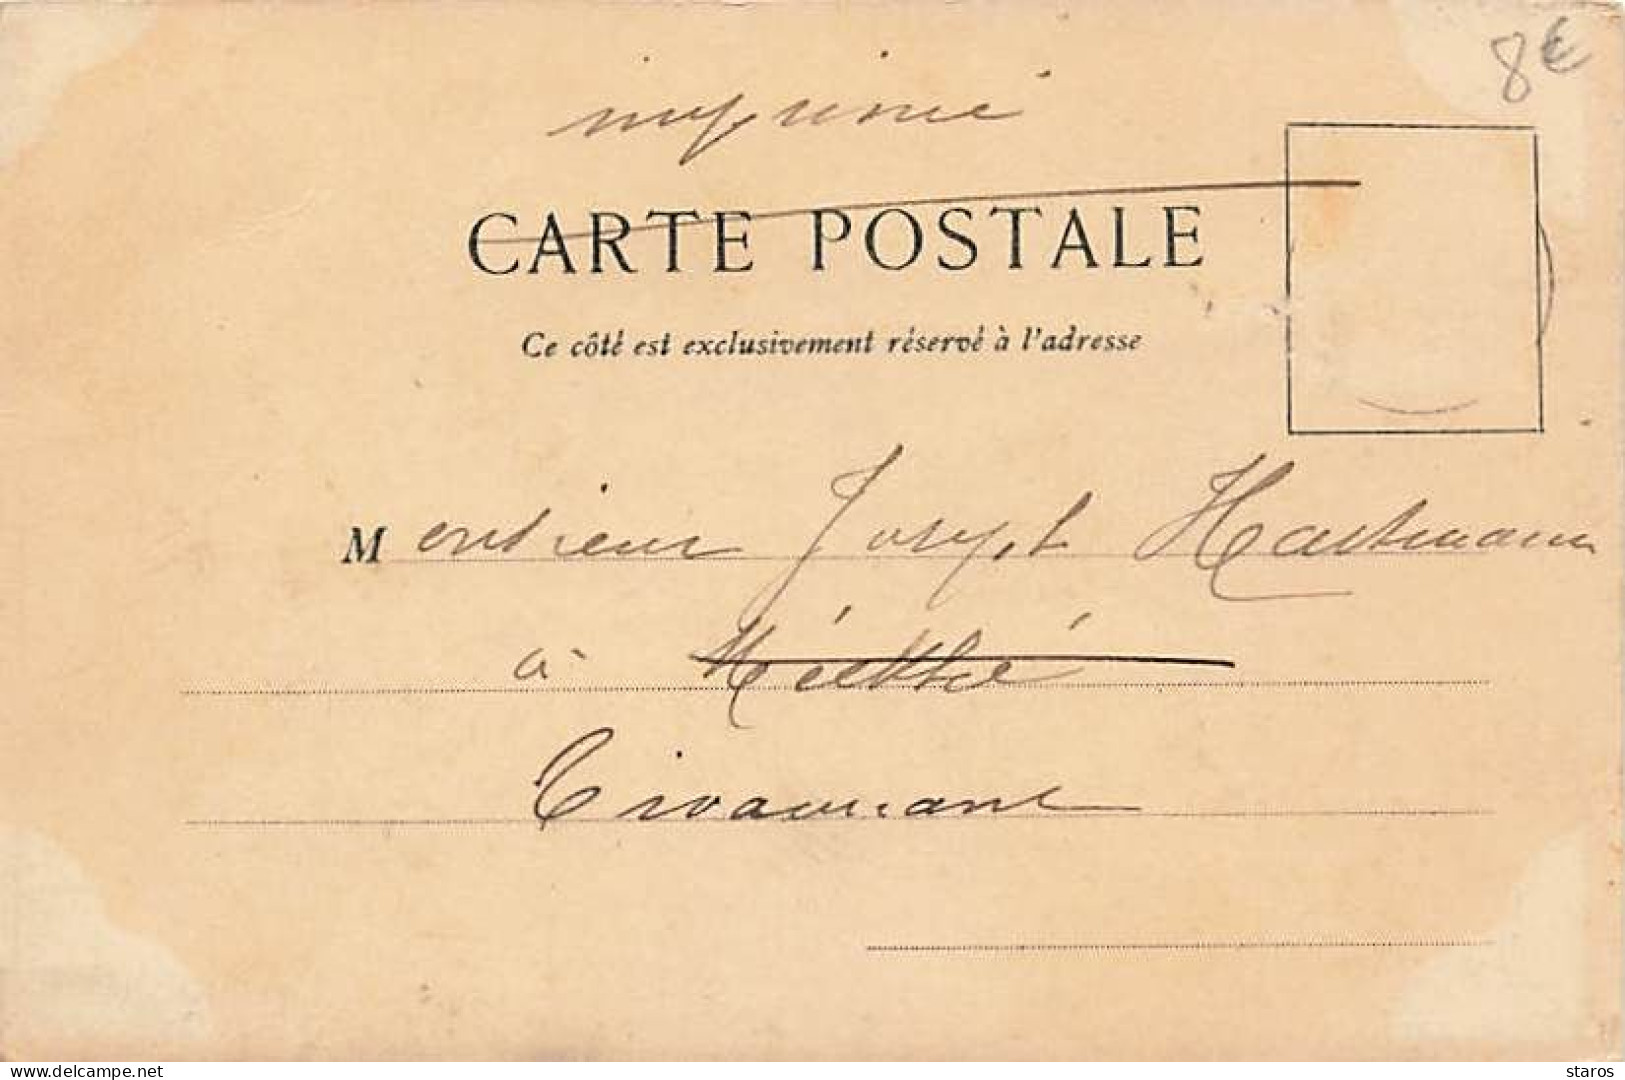 8€
imprimé
CARTE POSTALE
Ce côté est exclusivement réservé à l'adresse
Monsieur Joseph Hartmann
à
delcampe.net
staros